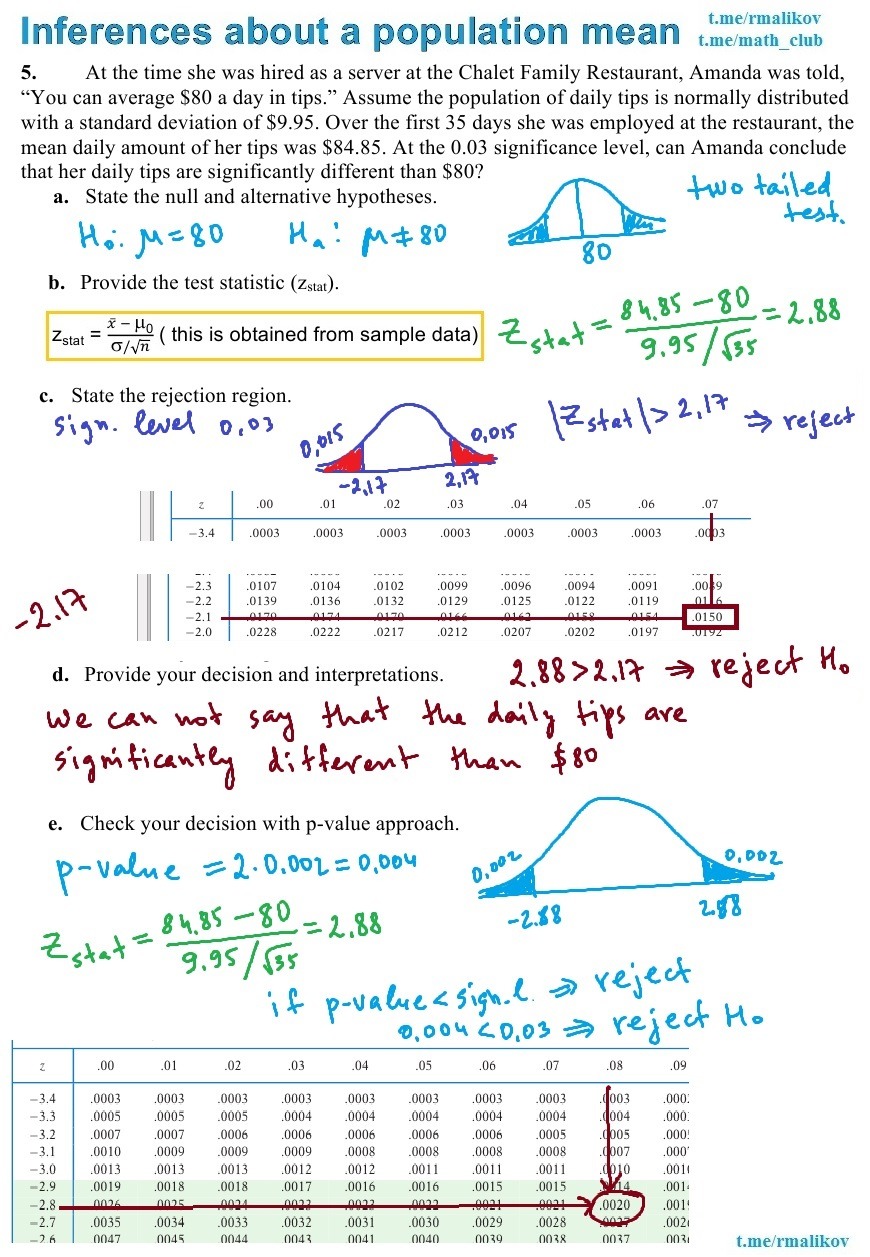 Inferences about a population mean
t.me/rmalikov
t.me/math_club
5. At the time she was hired as a server at the Chalet Family Restaurant, Amanda was told,
“You can average $80 a day in tips.” Assume the population of daily tips is normally distributed
with a standard deviation of $9.95. Over the first 35 days she was employed at the restaurant, the
mean daily amount of her tips was $84.85. At the 0.03 significance level, can Amanda conclude
that her daily tips are significantly different than $80?
a. State the null and alternative hypotheses.
two tailed
test.
H₀: μ = 80 Hₐ: μ ≠ 80
80
b. Provide the test statistic (zstat).
zstat = x̄ − μ0 / σ/√n ( this is obtained from sample data)
Zstat = 84.85 − 80 / 9.95/√35 = 2.88
c. State the rejection region.
sign. level 0,03
0,015
0,015
|Zstat| > 2,17 ⇒ reject
−2,17
2,17
z .00 .01 .02 .03 .04 .05 .06 .07
−3.4 .0003 .0003 .0003 .0003 .0003 .0003 .0003 .0003
−2.3 .0107 .0104 .0102 .0099 .0096 .0094 .0091 .0089
−2.2 .0139 .0136 .0132 .0129 .0125 .0122 .0119 .0116
−2.1 .0179 .0174 .0170 .0166 .0162 .0158 .0154 .0150
−2.0 .0228 .0222 .0217 .0212 .0207 .0202 .0197 .0192
−2.17
d. Provide your decision and interpretations.
2.88 > 2.17 ⇒ reject H₀
We can not say that the daily tips are
significantly different than $80
e. Check your decision with p-value approach.
p-value = 2·0.002 = 0,004
0,002
0,002
−2.88
2.88
Zstat = 84,85 − 80 / 9.95/√35 = 2,88
if p-value < sign.l. ⇒ reject
0,004 < 0,03 ⇒ reject H₀
z .00 .01 .02 .03 .04 .05 .06 .07 .08 .09
−3.4 .0003 .0003 .0003 .0003 .0003 .0003 .0003 .0003 .0003 .000
−3.3 .0005 .0005 .0005 .0004 .0004 .0004 .0004 .0004 .0004 .000
−3.2 .0007 .0007 .0006 .0006 .0006 .0006 .0006 .0005 .0005 .000
−3.1 .0010 .0009 .0009 .0009 .0008 .0008 .0008 .0008 .0007 .000
−3.0 .0013 .0013 .0013 .0012 .0012 .0011 .0011 .0011 .0010 .001
−2.9 .0019 .0018 .0018 .0017 .0016 .0016 .0015 .0015 .0014 .001
−2.8 .0026 .0025 .0024 .0023 .0023 .0022 .0021 .0021 .0020 .001
−2.7 .0035 .0034 .0033 .0032 .0031 .0030 .0029 .0028 .0027 .002
−2.6 .0047 .0045 .0044 .0043 .0041 .0040 .0039 .0038 .0037 .003
t.me/rmalikov